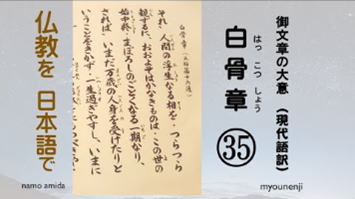 御文章の大意 (現代語訳)
はっ こつ しょう
白骨章
㉟
白骨章(五帖第十六通)
それ、人間の浮生なる相を、つらつら
観ずるに、おおよそはかなきものは、この世の
始中終、まぼろしのごとくなる一期なり、
されば、いまだ万歳の人身を受けたりと
いうことをきかず、一生過ぎやすし、いまに
仏教を 日本語で
namo amida
myounenji